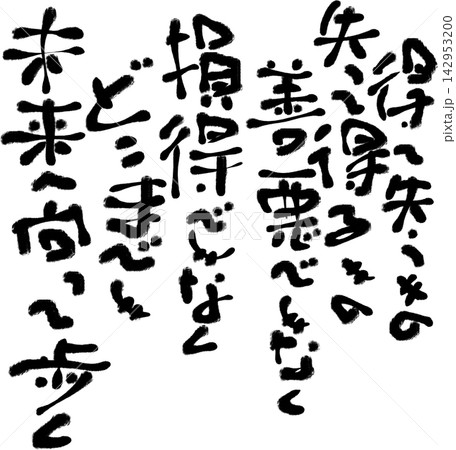 得て失うもの
失って得るもの
善の悪でもなく
損得でもなく
どこまでも
未来へ向って歩く
pixta.jp - 142953200
PIXTA